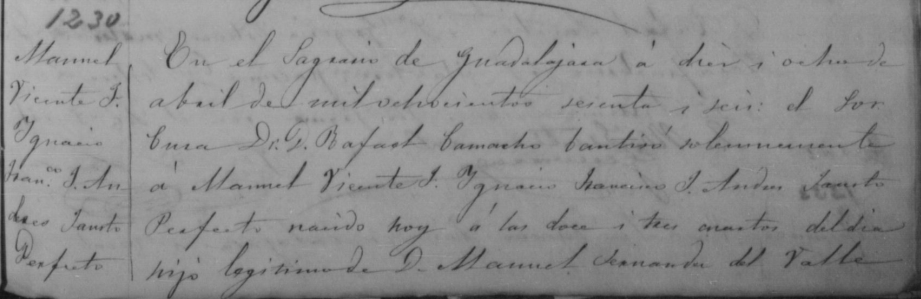 1230
Manuel
Vicente J.
Ygnacio
Fran.co J. An
dres Fausto
Perfecto
En el Sagrario de Guadalajara á diez i ocho de
abril de mil ochocientos sesenta i seis: el Sor
Cura Dr. D. Rafael Camacho bautisó solemnemente
á Manuel Vicente J. Ygnacio Francisco J. Andres Fausto
Perfecto nacido hoy á las doce i tres cuartos del dia
hijo legitimo de D. Manuel Fernandez del Valle